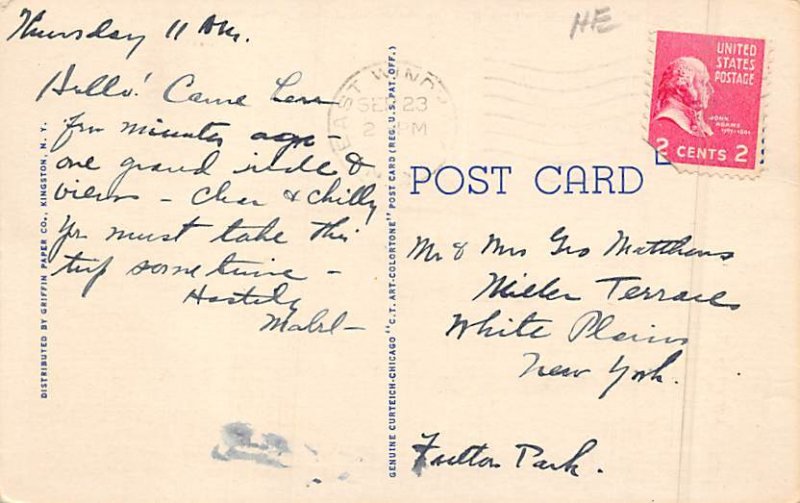 Thursday 11 AM.
Hello! Came here
few minutes ago
one grand ride &
views - clear & chilly
Yr must take this
trip sometime -
Hastily
Mabel -
DISTRIBUTED BY GRIFFIN PAPER CO., KINGSTON, N. Y.
GENUINE CURTEICH-CHICAGO "C.T. ART-COLORTONE" POST CARD (REG. U.S. PAT. OFF.)
HE
EAST WIND
SEP 23
2 PM
UNITED
STATES
POSTAGE
JOHN
ADAMS
1797-1801
2 CENTS 2
POST CARD
Mr & Mrs Geo Matthews
Miller Terrace
White Plains
New York.
Fulton Park.